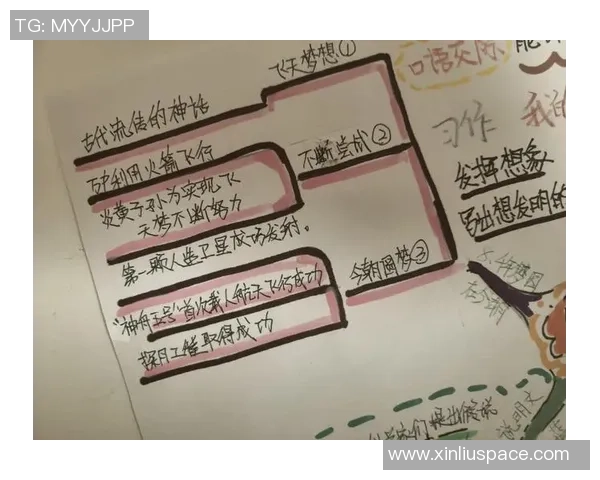 TG: MYYJJPP
飞天梦想①
古代流传的神话
万户利用火箭飞行
不断尝试②
炎黄子孙为实现飞
天梦不断努力
第一颗人造卫星成功发射。
今朝圆梦③
"神舟五号"首次载人航天飞行成功
探月工程取得成功
口语交际
习作
我的
发挥想象
写出想发明的
千年梦圆
在今朝
提出假说
说明文
www.xinliuspace.com